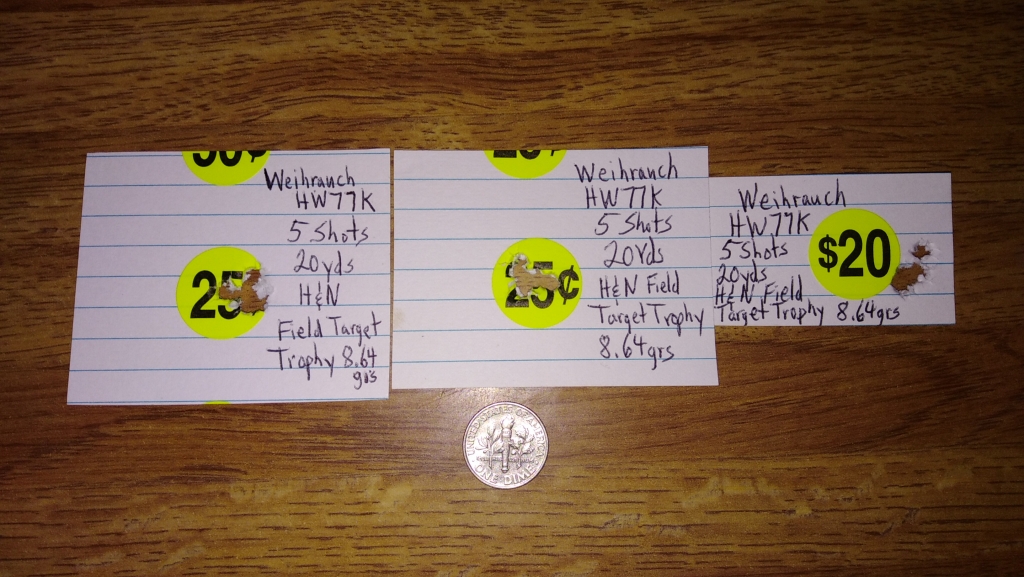 Weihrauch
HW77K
5 Shots
20yds
H&N
Field Target
Trophy 8.64
grs
25
Weihrauch
HW77K
5 Shots
20Yds
H&N Field
Target Trophy
8.64grs
25¢
Weihrauch
HW77K
5 Shots
20yds
H&N Field
Target Trophy 8.64grs
$20
UNITED STATES OF AMERICA
ONE DIME